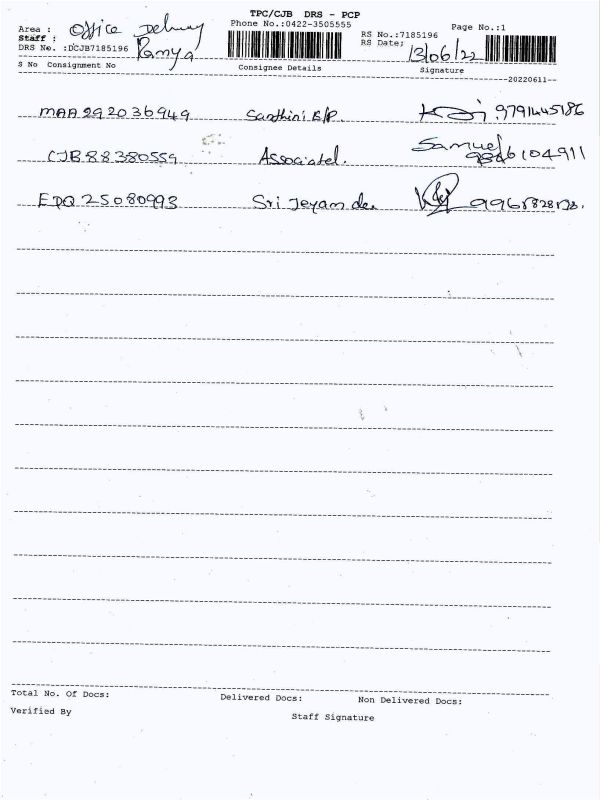 TPC/CJB DRS - PCP
Phone No.:0422-3505555
Area : Office Delivery
Staff : Ramya
DRS No. :DCJB7185196
RS No.:7185196
RS Date: 13/06/22
Page No.:1
S No Consignment No Consignee Details Signature
--20220611--
MAA292036949 Santhini B/P. 9791445186
CJB88380559 Associated. Samuel 9846104911
EDQ25080993 Sri Jeyam
Total No. Of Docs: Delivered Docs: Non Delivered Docs:
Verified By Staff Signature